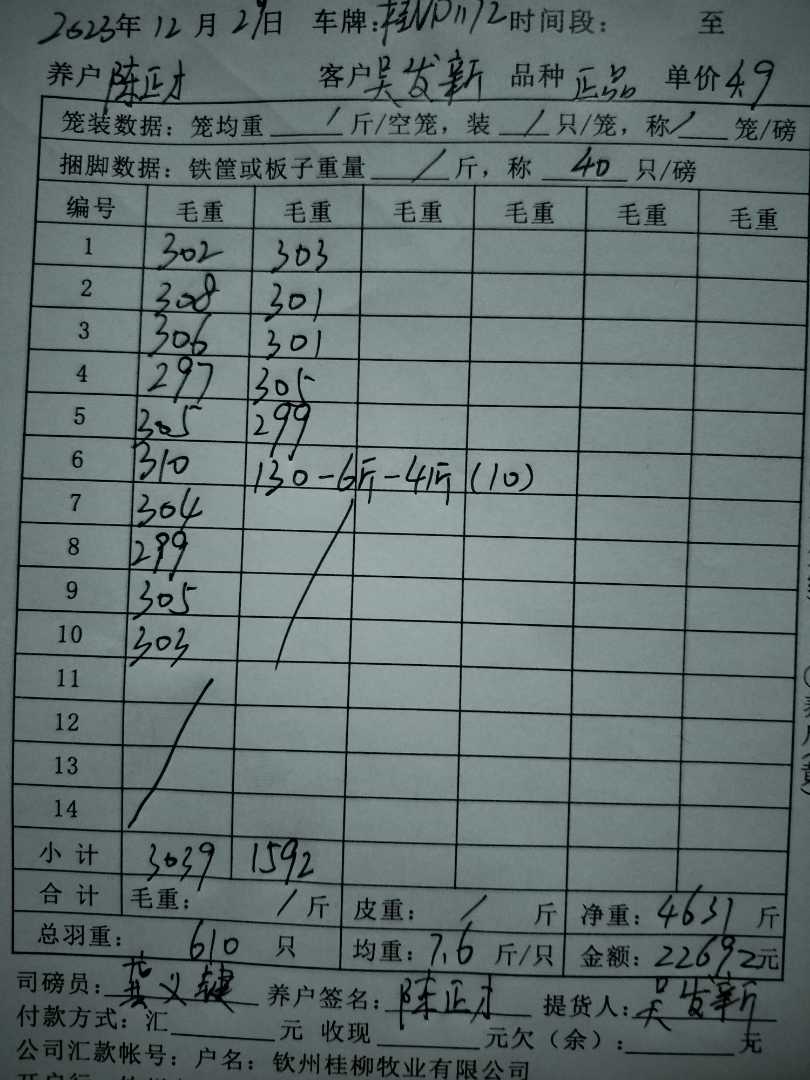 2023年12月29日 车牌:桂ND1172 时间段: 至
养户 陈正才 客户 吴发新 品种 正品 单价 4.9
笼装数据:笼均重 / 斤/空笼,装 / 只/笼,称 / 笼/磅
捆脚数据:铁筐或板子重量 / 斤,称 40 只/磅
编号 毛重 毛重 毛重 毛重 毛重 毛重
1 302 303
2 308 301
3 306 301
4 297 305
5 305 299
6 310 130-6斤-4斤(10)
7 304
8 299
9 305
10 303
11
12
13
14
小计 3039 1592
合计 毛重: / 斤 皮重: / 斤 净重: 4631 斤
总羽重: 610 只 均重: 7.6 斤/只 金额: 22692元
司磅员: 义键 养户签名: 陈正才 提货人: 吴发新
付款方式:汇 元 收现 元欠(余): 元
公司汇款帐号:户名:钦州桂柳牧业有限公司